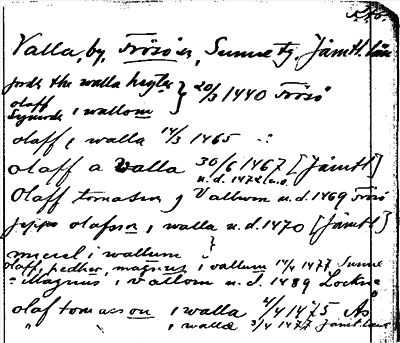 Valla, by, Frösö sn, Sunne tg, Jämtl. län
jordh the walla hegler } 20/3 1440 Frösö
olaff
Sywrde i wallom
olaff i walla 14/3 1465
olaff a valla 30/6 1467 [Jämtl]
n.d. 1472
Olaff tomasson j Vallwm n.d. 1469 Frösö
jeppo olafson, i walla n.d. 1470 [Jämtl]
i wallum
olaff, pedher, magnus i vallum 14/4 1477 Sunne
Magnus i Vallom n.d. 1489 Lockne
olaf tomasson i walla 4/4 1475 Ås
" " , i wallæ 3/4 1477 Jämtland